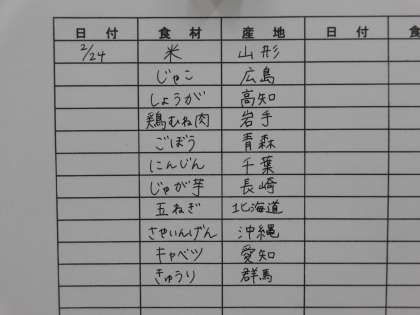 日付 食材 産地 日付 食
2/24 米 山形
じゃこ 広島
しょうが 高知
鶏むね肉 岩手
ごぼう 青森
にんじん 千葉
じゃが芋 長崎
玉ねぎ 北海道
さやいんげん 沖縄
キャベツ 愛知
きゅうり 群馬